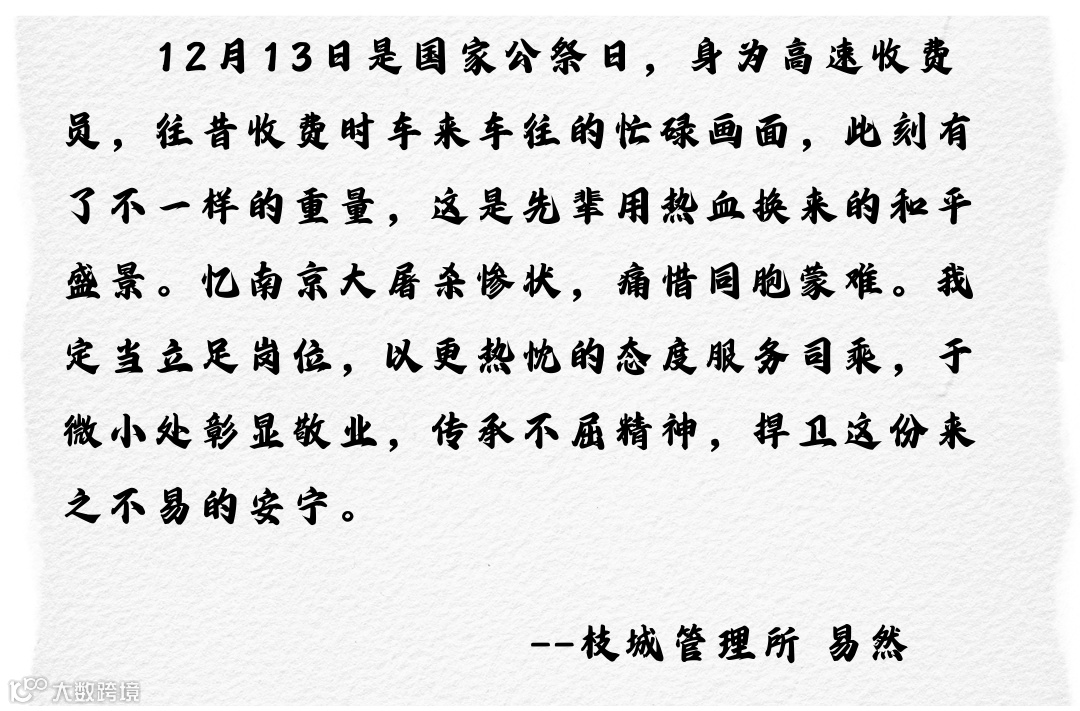 12月13日是国家公祭日，身为高速收费
员，往昔收费时车来车往的忙碌画面，此刻有
了不一样的重量，这是先辈用热血换来的和平
盛景。忆南京大屠杀惨状，痛惜同胞蒙难。我
定当立足岗位，以更热忱的态度服务司乘，于
微小处彰显敬业，传承不屈精神，捍卫这份来
之不易的安宁。
--枝城管理所 易然
大数跨境